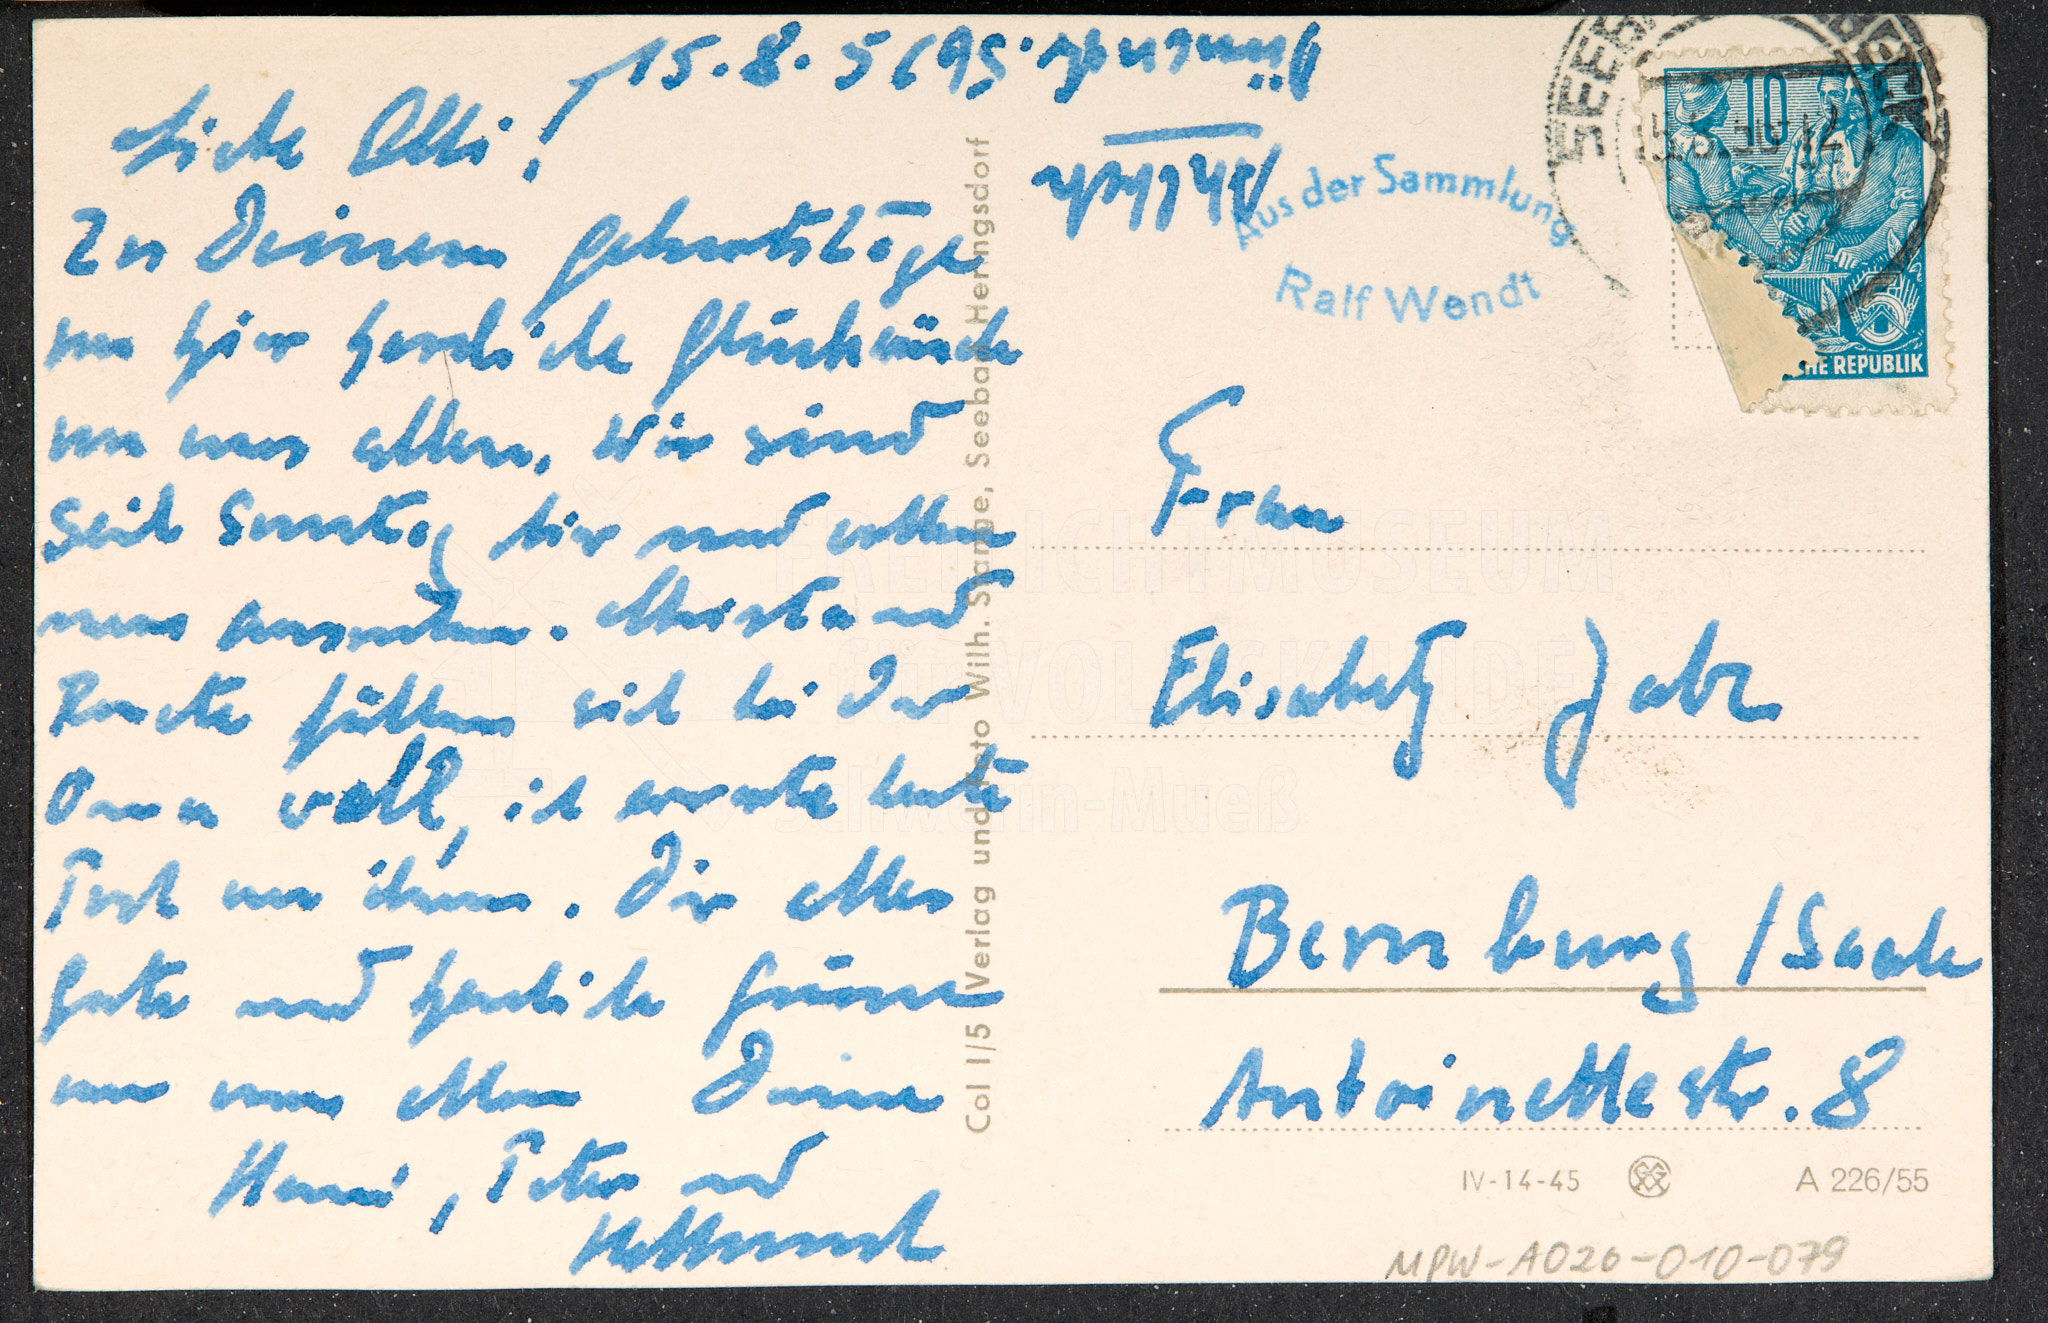 15.8.56
Liebe Olli!
Zu Deinem Geburtstage
von hier herzliche Glückwünsche
von uns allen. Wir sind
seit Sonntag hier und wollen
uns ausruhen. und
fühlen sich bei der
Oma wohl, ich erwarte heute
Post von ihnen. Dir alles
Gute und herzliche Grüsse
von uns allen Deine
Hanni, Peter und
Col I/5 Verlag und Foto Wilh. Stange, Seebad Heringsdorf
Aus der Sammlung
Ralf Wendt
SEEB
10
REPUBLIK
Frau
Elisabeth
Bernburg/Saale
Antoinettestr. 8
IV-14-45
A 226/55
MPW-A020-010-079
FREILICHTMUSEUM
für VOLKSKUNDE
Schwerin-Mueß